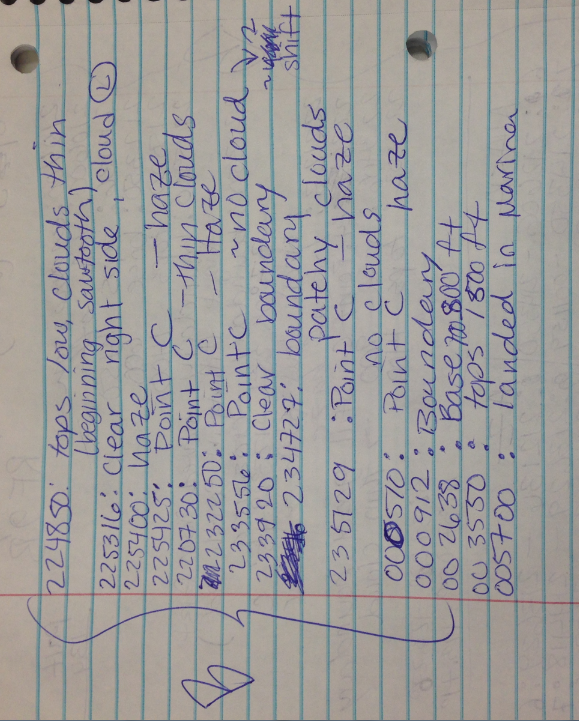 224850: tops low, clouds thin
(beginning sawtooth)
225316: Clear right side, cloud L
225400: haze
225425: Point C - haze
220730: Point C - thin clouds
232250: Point C - Haze
233556: Point C ~no cloud
233920: Clear boundary
shift
234727: boundary
patchy clouds
235129: Point C - haze
no clouds
000510: Point C haze
000912: Boundary
002638: Base 800 ft
003550: tops 1800 ft
005700: landed in Marina